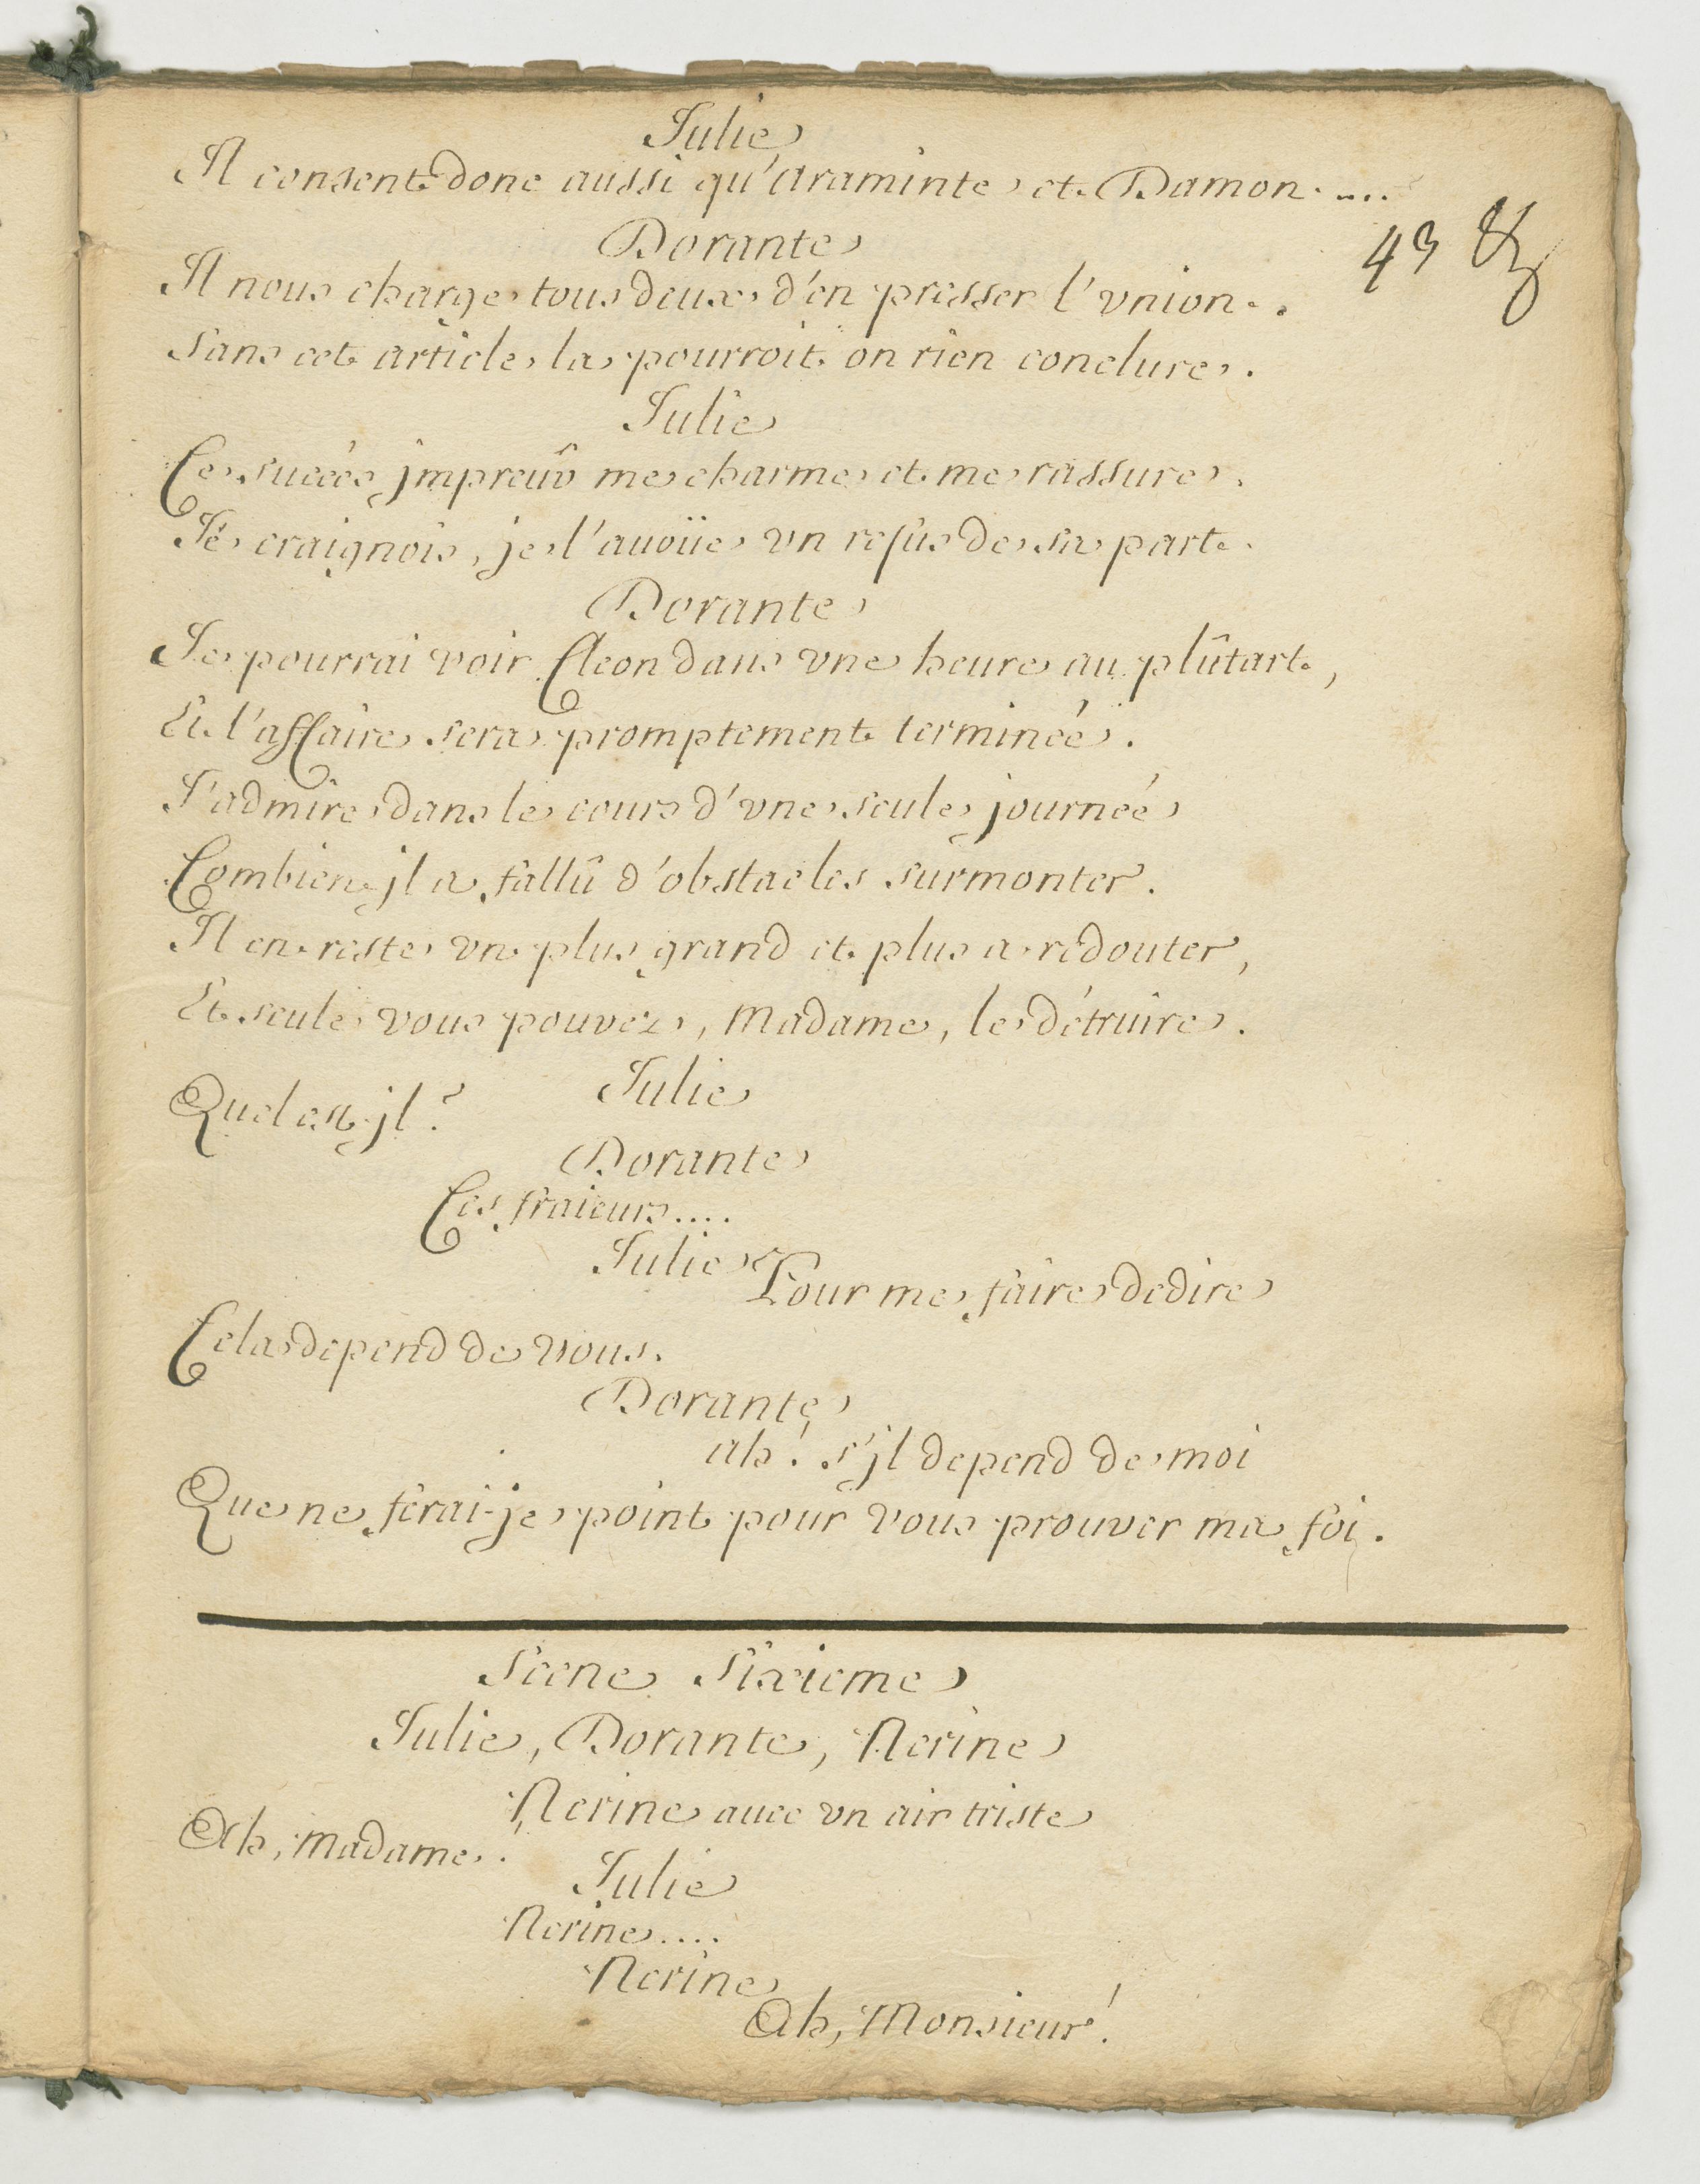 Julie
Il consent donc aussi qu'Araminte et Damon....
43
Dorante
Il nous charge tous deux d'en presser l'vnion.
Sans cet article la pourroit on rien conclure.
Julie
Ce succés jmpreuû me charme et me rassure.
Je craignois, je l'auoüe vn refus de sa part.
Dorante
Je pourrai voir Cleon dans vne heure au plûtart,
Et l'affaire sera promptement terminée.
J'admire dans le cours d'vne seule journée
Combien jl a fallû d'obstacles surmonter.
Il en reste vn plus grand et plus a redouter,
Et seule vous pouvez, Madame, le détruire.
Julie
Quel est jl?
Dorante
Ces fraieurs....
Julie
Pour me faire dedire
Cela depend de vous.
Dorante
ah! s'jl depend de moi
Que ne ferai-je point pour vous prouver ma foi.
Scene Sixieme
Julie, Dorante, Nerine
Nerine auec vn air triste
Ah, Madame!
Julie
Nerine....
Nerine
Ah, Monsieur!